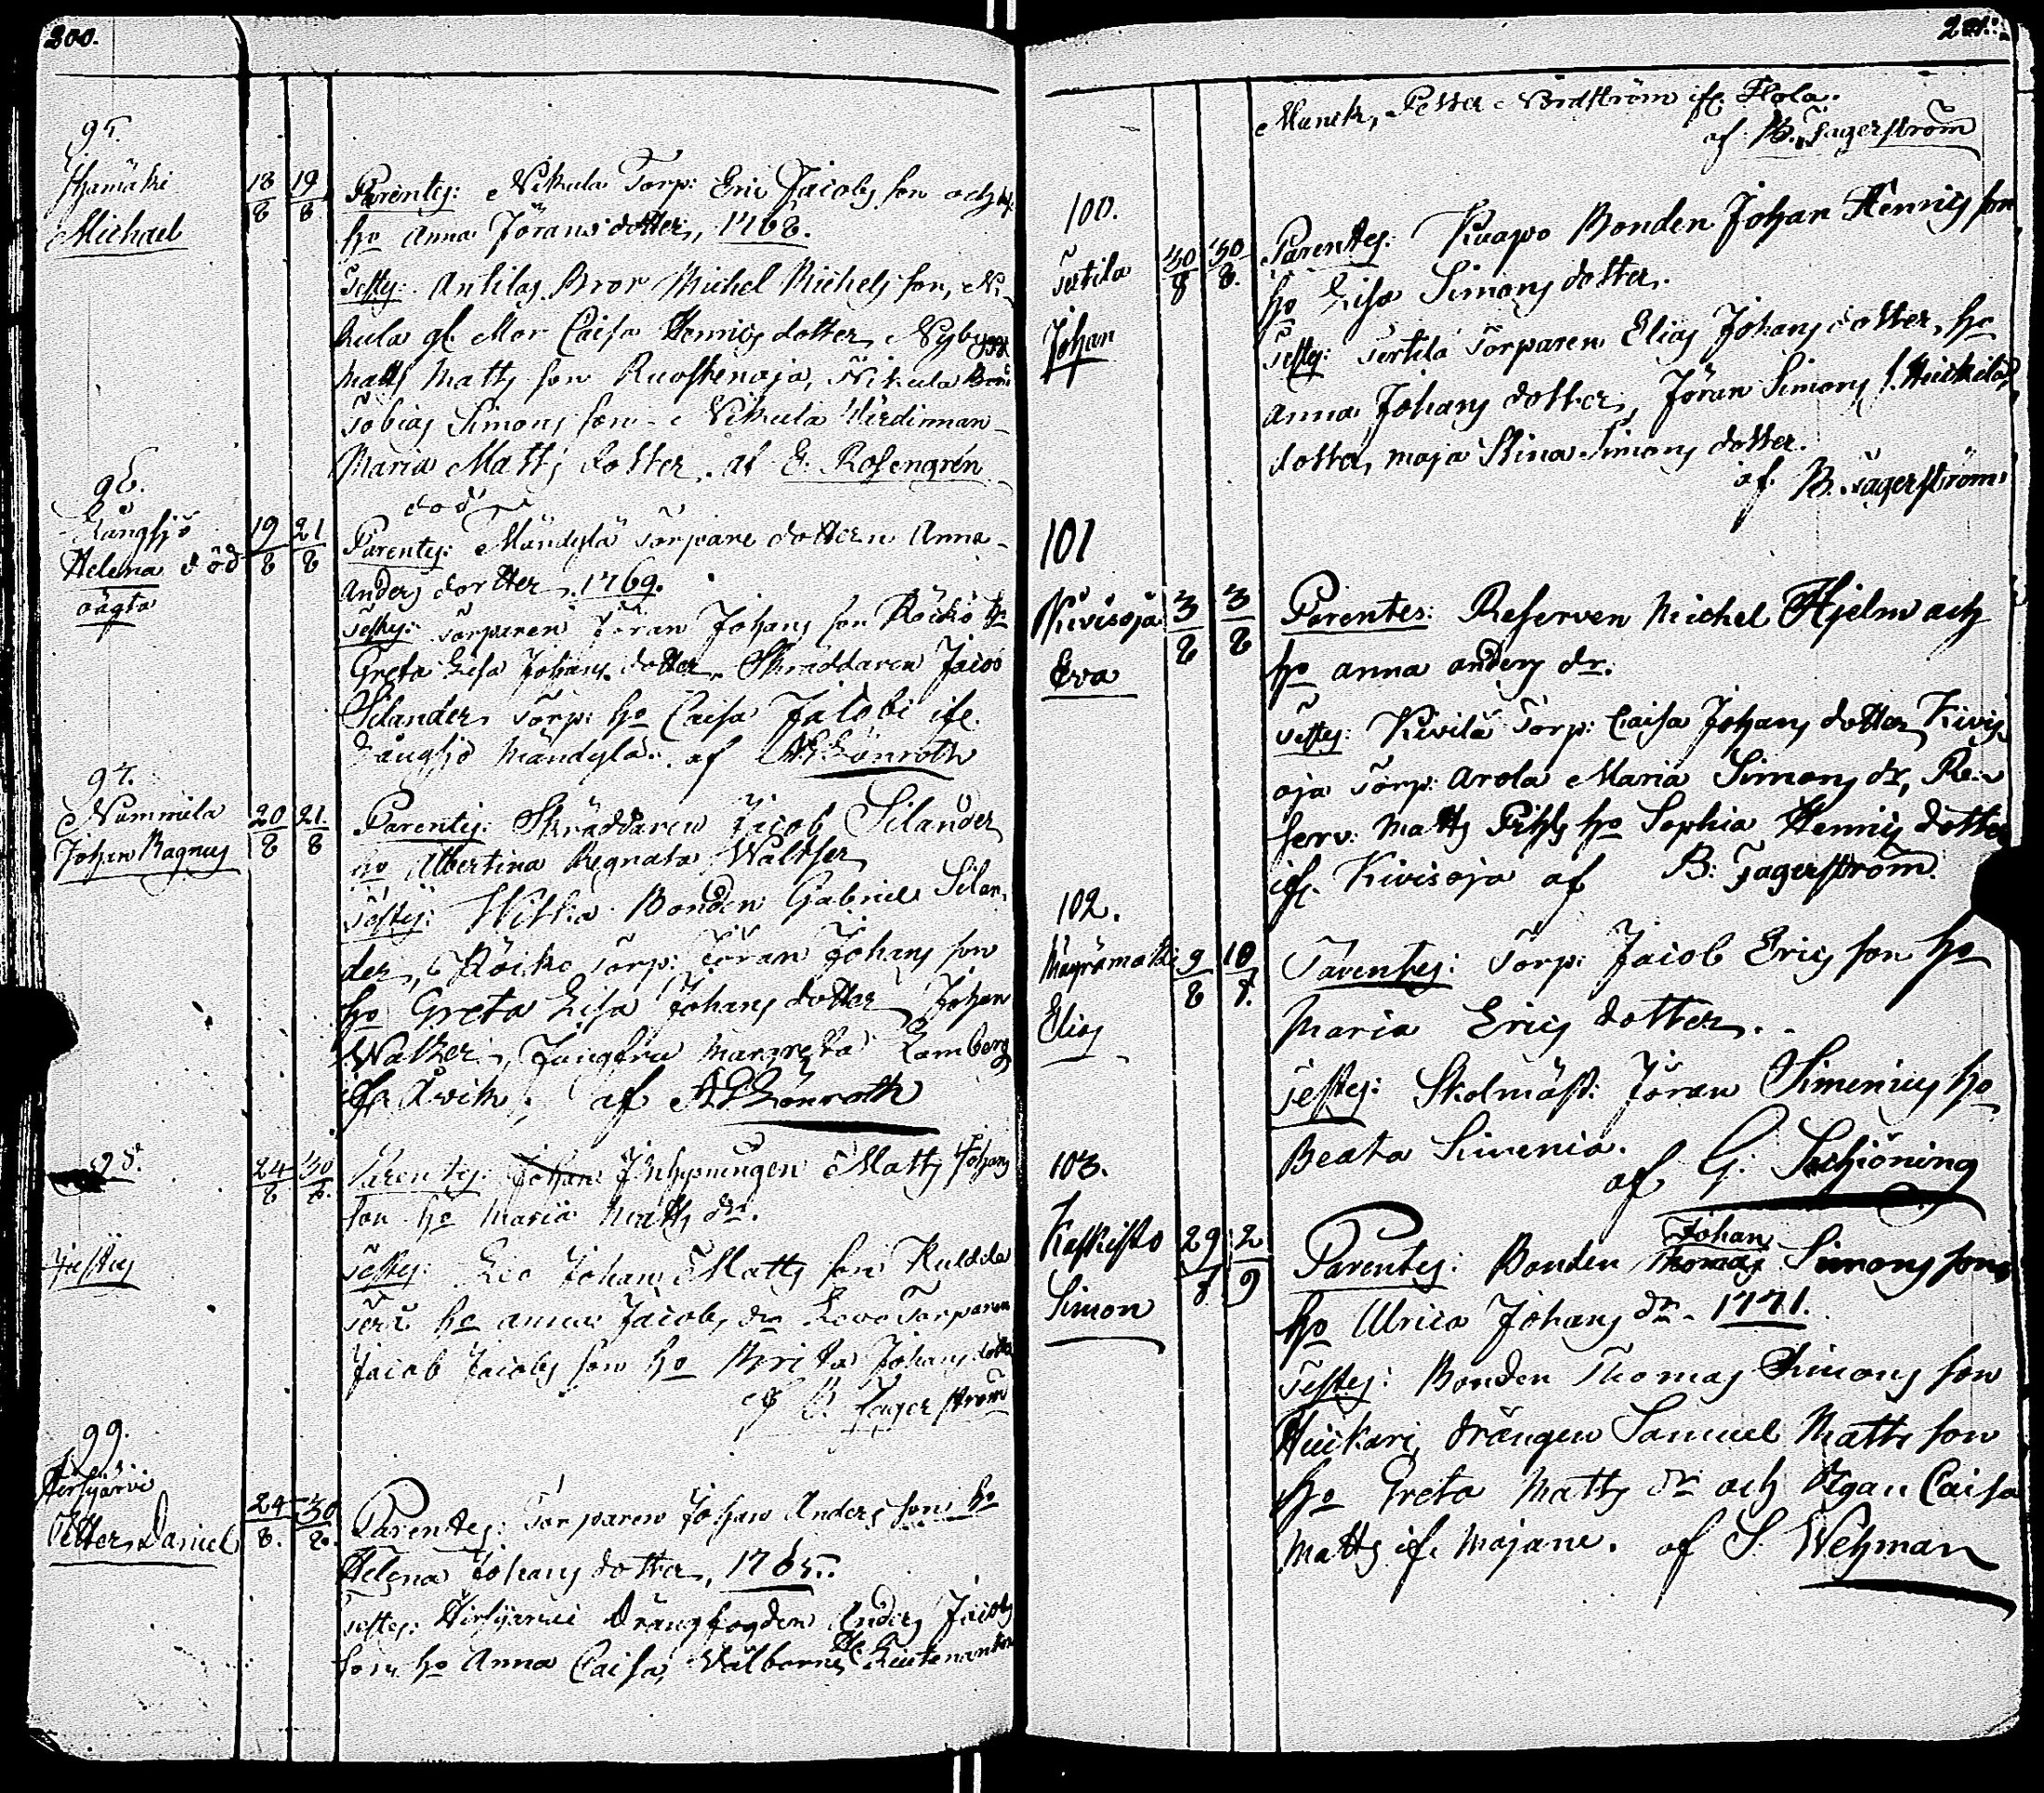 200.
95.
Michael
18/8 19/8
Parentes: Nikula Torp: Eric Jacobs son och
ho Anna Jörans dotter, 1768.
Testes: Antilas Bror Michel Michels son, Ni-
kula gl. Mor Caisa Henrics dotter, Nybygg
Matts Matts son Ruoskenoja, Nikula Bond
Tobias Simons son - Nikula Värdinnan
Maria Matts dotter. af E. Rosengrén
96.
Långsjö
Helena död
oägta
19/8 21/8
död
Parentes: Mändylä Torpare dottern Anna
Anders dortter, 1769.
Testes: Torparen Jöran Johans son Röckö ho
Greta Lisa Johans dotter, Skräddaren Jacob
Silander, Torp: ho Caisa Jacobi ifr.
Långsjö Mändylä. af A. Lönroth
97.
Nummela
Johan Magnus
20/8 21/8
Parentes: Skräddaren Jacob Silander
ho Albertina Regnata Waltser
Testes: Bonden Gabriel Silan-
der, Röiko Torp: Jöran Johans son
ho Greta Lisa Johans dotter, Johan
Walzer, Jungfru Margreta Lamberg
ifr. af A. Lönroth
98.
Justus
24/8 30/8
Parentes: Johan Inhysningen Matts Johans
son ho Maria Matts dr.
Testes: Johan Matts son
ho Anna Jacobs dr Torparen
Jacob Jacobs son ho Brita Johans dotter
af B. Fagerström
99.
Hirsjärvi
Petter Daniel
24/8. 30/8.
Parentes: Torparen Johan Anders son ho
Helena Johans dotter, 1765.
Testes: Hirsjärvi Drängfogden Anders Jacobs
son, ho Anna Caisa, Välborne H. Lieutenanten
201.
Munck, Petter Nordström ifr. Flola.
af B. Fagerström
100.
Tertila
Johan
30/8 30/8.
Parentes: Kuapo Bonden Johan Henrics son
ho Lisa Simons dotter.
Testes: Tertilä Torparen Elias Johans dotter, ho
Anna Johans dotter, Jöran Simons s. Heickilä,
dotter, Maja Stina Simons dotter.
af B. Fagerström
101
Kivisoja
Eva
3/8 3/8
Parentes: Reserven Michel Hjelm och
ho Anna Anders dr.
Testes: Kivilä Torp: Caisa Johans dotter, Kivis-
oja Torp: Arola Maria Simons dr, Re-
serv: Matts Pihls ho Sophia Henrics dotter
ifr. Kivisoja af B: Fagerström.
102.
Mäyrämäki
Elias
9/8 10/8.
Parentes: Torp: Jacob Erics son ho
Maria Erics dotter.
Testes: Skolmäst: Jöran Simenius ho
Beata Simenia.
af G: Schöning
103.
Kaskisto
Simon
29/8 2/9
Johan
Parentes: Bonden Thomas Simons son
ho Ulrica Johans dr. 1771.
Testes: Bonden Thomas Simons son
Huikari, drängen Samuel Matts son
ho Greta Matts dr och Pigan Caisa
Matts if. Majane. af S. Wehman